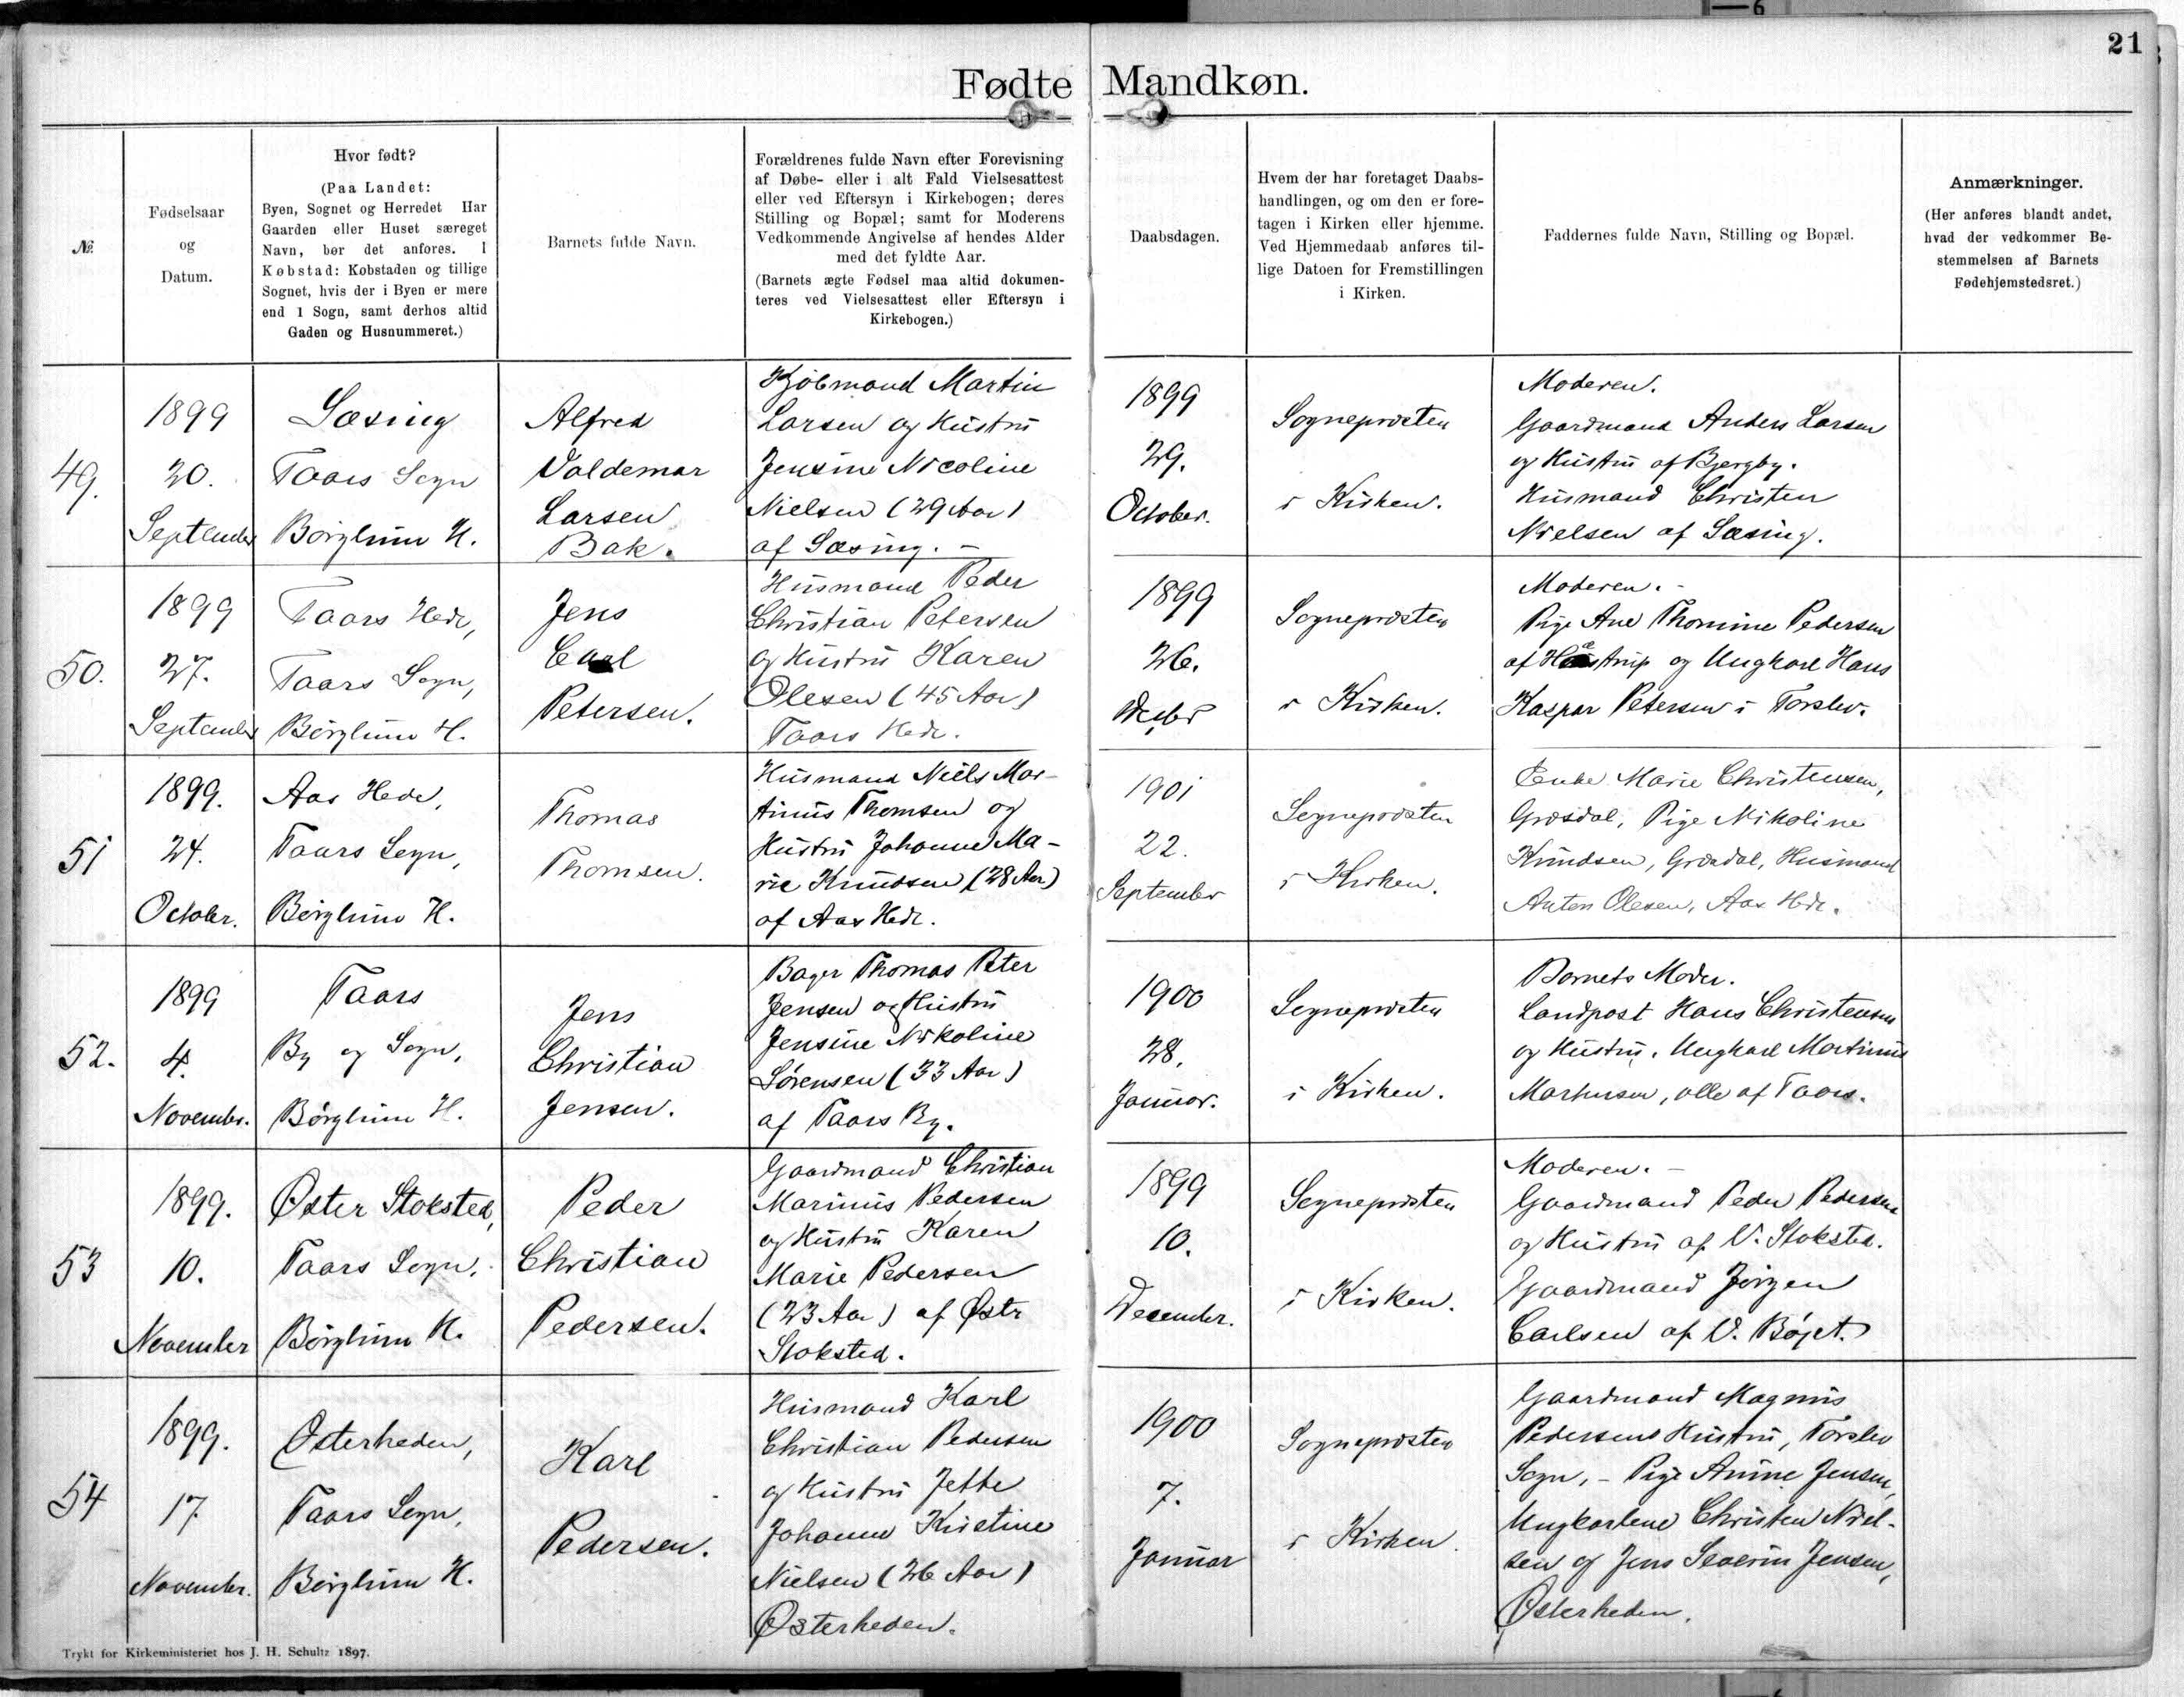 21
Fødte Mandkøn.
№
Fødselsaar
og
Datum.
Hvor født?
(Paa Landet:
Byen, Sognet og Herredet Har
Gaarden eller Huset særeget
Navn, bør det anføres. I
Købstad: Købstaden og tillige
Sognet, hvis der i Byen er mere
end 1 Sogn, samt derhos altid
Gaden og Husnummeret.)
Barnets fulde Navn.
Forældrenes fulde Navn efter Forevisning
af Døbe- eller i alt Fald Vielsesattest
eller ved Eftersyn i Kirkebogen; deres
Stilling og Bopæl; samt for Moderens
Vedkommende Angivelse af hendes Alder
med det fyldte Aar.
(Barnets ægte Fødsel maa altid dokumen-
teres ved Vielsesattest eller Eftersyn i
Kirkebogen.)
Daabsdagen.
Hvem der har foretaget Daabs-
handlingen, og om den er fore-
tagen i Kirken eller hjemme.
Ved Hjemmedaab anføres til-
lige Datoen for Fremstillingen
i Kirken.
Faddernes fulde Navn, Stilling og Bopæl.
Anmærkninger.
(Her anføres blandt andet,
hvad der vedkommer Be-
stemmelsen af Barnets
Fødehjemstedsret.)
49.
1899
20.
September
Sæsing
Taars Sogn
Børglum H.
Alfred
Valdemar
Larsen
Bak.
Kjøbmand Martin
Larsen og Hustru
Jensine Nicoline
Nielsen (29 Aar)
af Sæsing. -
1899
29.
October.
Sognepræsten
i Kirken.
Moderen.
Gaardmand Anders Larsen
og Hustru af Bjergby.
Husmand Christen
Nielsen af Sæsing.
50.
1899
27.
September
Taars Hede,
Taars Sogn,
Børglum H.
Jens
Carl
Petersen.
Husmand Peder
Christian Petersen
og Hustru Karen
Olesen (45 Aar)
Taars Hede.
1899
26.
Decbr
Sognepræsten
i Kirken.
Moderen. -
Pige Ane Thomine Pedersen
af Hæstrup og Ungkarl Hans
Kaspar Petersen i Torslev.
51
1899.
24.
October.
Aas Hede,
Taars Sogn,
Børglum H.
Thomas
Thomsen.
Husmand Niels Mar-
tinus Thomsen og
Hustru Johanne Ma-
rie Knudsen (28 Aar)
af Aas Hede.
1901
22.
September
Sognepræsten
i Kirken.
Enke Marie Christensen,
Græsdal, Pige Nikoline
Knudsen, Græsdal, Husmand
Anton Olesen, Aas Hede.
52.
1899
4.
November.
Taars
By og Sogn,
Børglum H.
Jens
Christian
Jensen.
Bager Thomas Peter
Jensen og Hustru
Jensine Nikoline
Sørensen (33 Aar)
af Taars By.
1900
28.
Januar.
Sognepræsten
i Kirken.
Barnets Moder.
Landpost Hans Christensen
og Hustru. Ungkarl Martinus
Martinsen, alle af Taars.
53
1899.
10.
November
Øster Stoksted,
Taars Sogn,
Børglum H.
Peder
Christian
Pedersen.
Gaardmand Christian
Marinus Pedersen
og Hustru Karen
Marie Pedersen
(23 Aar) af Østr
Stoksted.
1899
10.
December.
Sognepræsten
i Kirken.
Moderen. -
Gaardmand Peder Pedersen
og Hustru af V. Stoksted.
Gaardmand Jørgen
Carlsen af V. Bøjet.
54
1899.
17.
November.
Østerheden,
Taars Sogn,
Børglum H.
Karl
Pedersen.
Husmand Karl
Christian Pedersen
og Hustru Jette
Johanne Kristine
Nielsen (26 Aar)
Østerheden.
1900
7.
Januar
Sognepræsten
i Kirken.
Gaardmand Magnus
Pedersens Hustru, Torslev
Sogn, - Pige Anine Jensen,
Ungkarlene Christen Niel-
sen og Jens Severin Jensen,
Østerheden.
Trykt for Kirkeministeriet hos J. H. Schultz 1897.